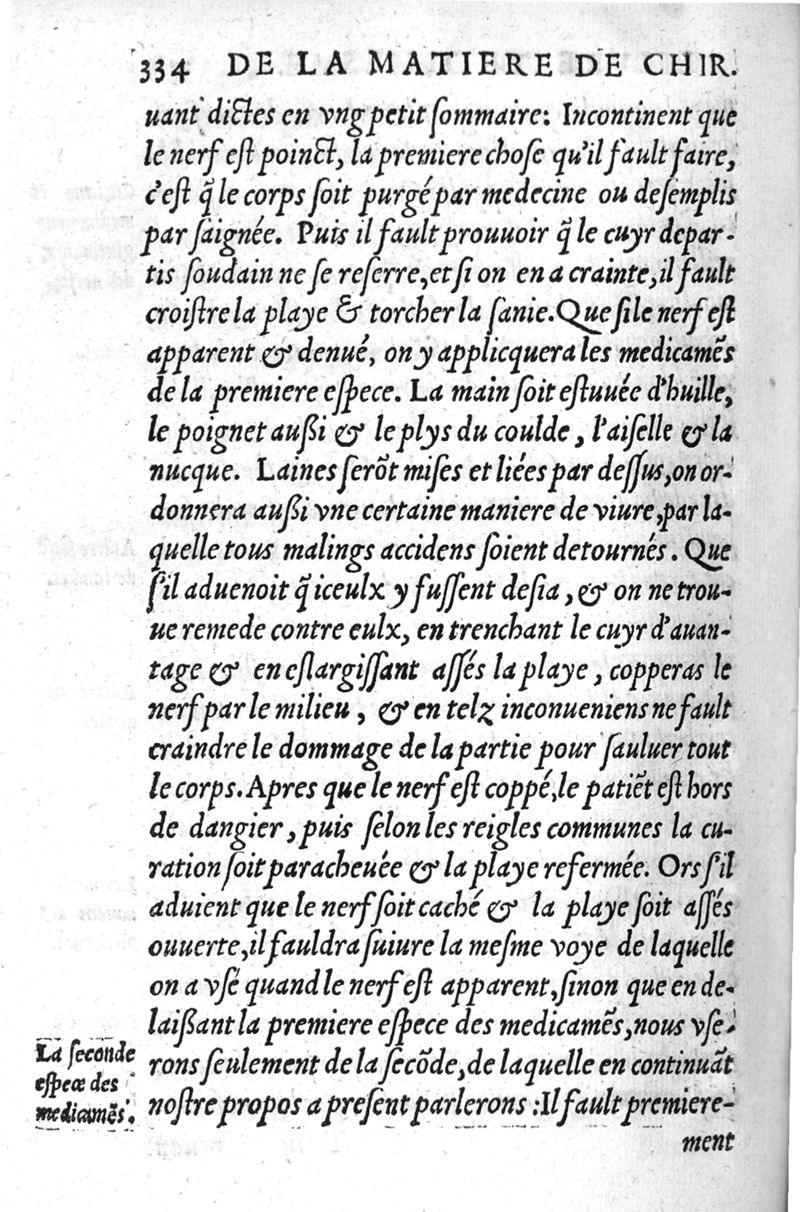 334 DE LA MATIERE DE CHIR.
uant dictes en vng petit ſommaire: Incontinent que
le nerf eſt poinct, la premiere choſe qu'il fault faire,
c'eſt q̃ le corps ſoit purgé par medecine ou deſemplis
par ſaignée. Puis il fault prouuoir q̃ le cuyr depar-
tis ſoudain ne ſe reſerre, et ſi on en a crainte, il fault
croiſtre la playe & torcher la ſanie. Que ſi le nerf eſt
apparent & denué, on y applicquera les medicamẽs
de la premiere eſpece. La main ſoit eſtuuée d'huille,
le poignet außi & le plys du coulde, l'aiſelle & la
nucque. Laines ſerõt miſes et liées par deſſus, on or-
donnera außi vne certaine maniere de viure, par la-
quelle tous malings accidens ſoient detournés. Que
ſ'il aduenoit q̃ iceulx y fuſſent deſia, & on ne trou-
ue remede contre eulx, en trenchant le cuyr d'auan-
tage & en eſlargiſſant aſſés la playe, copperas le
nerf par le milieu, & en telz inconueniens ne fault
craindre le dommage de la partie pour ſauluer tout
le corps. Apres que le nerf eſt coppé, le patiẽt eſt hors
de dangier, puis ſelon les reigles communes la cu-
ration ſoit paracheuée & la playe refermée. Ors ſ'il
aduient que le nerf ſoit caché & la playe ſoit aſſés
ouuerte, il fauldra ſuiure la meſme voye de laquelle
on a vſé quand le nerf eſt apparent, ſinon que en de-
laißant la premiere eſpece des medicamẽs, nous vſe-
rons ſeulement de la ſecõde, de laquelle en continuãt
noſtre propos a preſent parlerons: Il fault premiere-
ment
La ſeconde
eſpece des
medicamẽs.